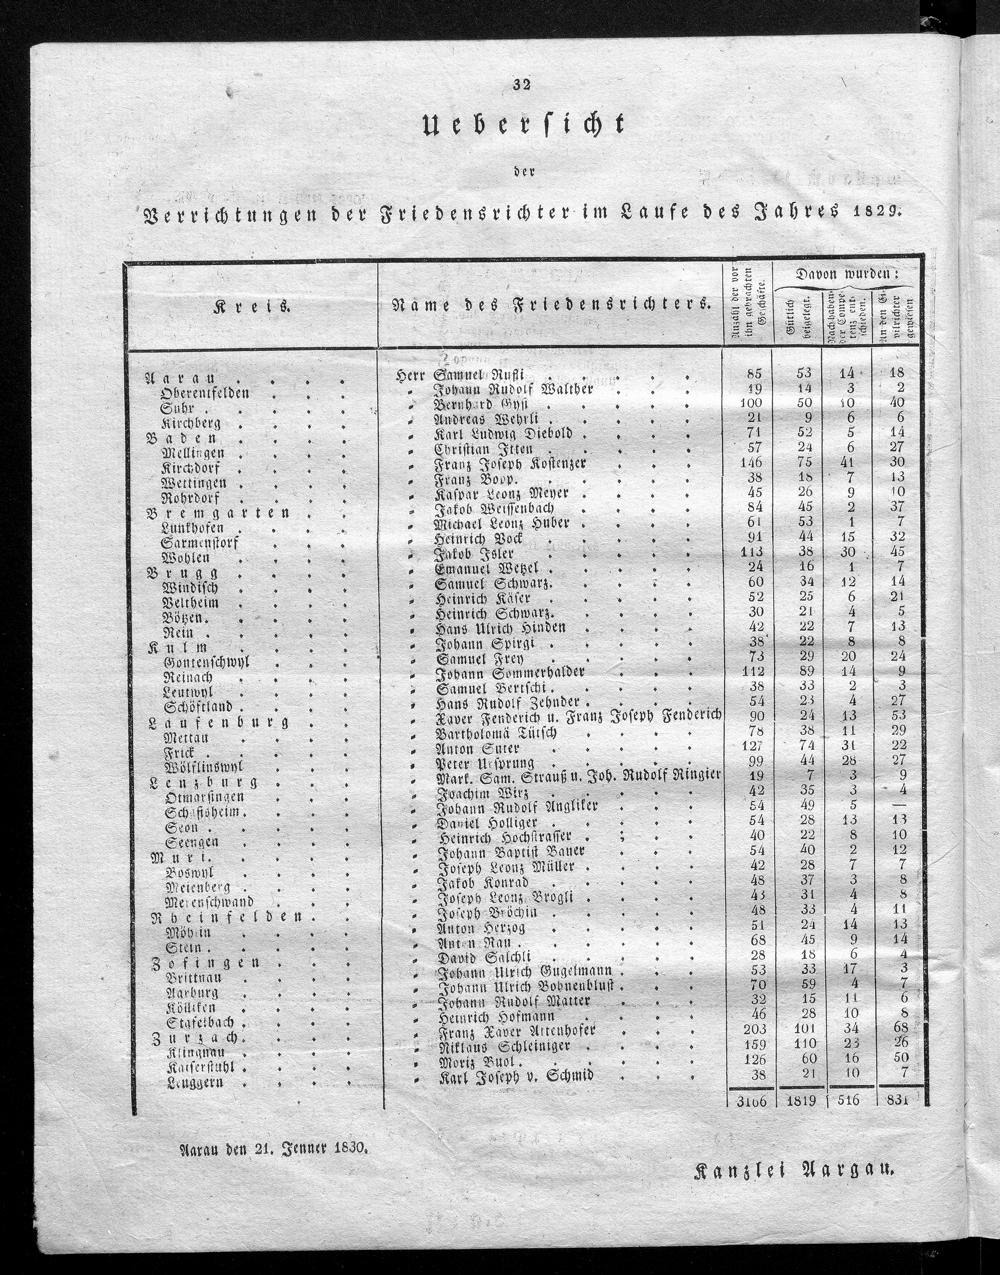 32
Uebersicht
der
Verrichtungen der Friedensrichter im Laufe des Jahres 1829.
Kreis. Name des Friedensrichters. Anzahl der vor ihn gebrachten Geschäfte. Davon wurden:
Gütlich beigelegt. Nach habender Competenz entschieden. An den Civilrichter gewiesen
Aarau . . . . Herr Samuel Rusli . . . . . 85 53 14 18
Oberentfelden . . . . „ Johann Rudolf Walther . . . 19 14 3 2
Suhr . . . . . „ Bernhard Gysi . . . . . 100 50 10 40
Kirchberg . . . . „ Andreas Wehrli . . . . . 21 9 6 6
Baden . . . . „ Karl Ludwig Diebold . . . . 71 52 5 14
Mellingen . . . . „ Christian Itten . . . . . 57 24 6 27
Kirchdorf . . . . „ Franz Joseph Kostenzer . . . 146 75 41 30
Wettingen . . . . „ Franz Bopp. . . . . . 38 18 7 13
Rohrdorf . . . . „ Kaspar Leonz Meyer . . . . 45 26 9 10
Bremgarten . . . „ Jakob Weissenbach . . . . 84 45 2 37
Lunkhofen . . . . „ Michael Leonz Huber . . . . 61 53 1 7
Sarmenstorf . . . . „ Heinrich Bock . . . . . 91 44 15 32
Wohlen . . . . „ Jakob Isler . . . . . 113 38 30 45
Brugg . . . . „ Emanuel Wetzel . . . . . 24 16 1 7
Windisch . . . . „ Samuel Schwarz. . . . . 60 34 12 14
Veltheim . . . . „ Heinrich Käser . . . . . 52 25 6 21
Bötzen. . . . . „ Heinrich Schwarz. . . . . 30 21 4 5
Rein . . . . . „ Hans Ulrich Hinden . . . . 42 22 7 13
Kulm . . . . „ Johann Spirgi . . . . . 38 22 8 8
Gontenschwyl . . . . „ Samuel Frey . . . . . 73 29 20 24
Reinach . . . . „ Johann Sommerhalder . . . . 112 89 14 9
Leutwyl . . . . „ Samuel Bertschi. . . . . 38 33 2 3
Schöftland . . . . „ Hans Rudolf Zehnder . . . . 54 23 4 27
Laufenburg . . . „ Xaver Fenderich u. Franz Joseph Fenderich 90 24 13 53
Mettau . . . . „ Bartholomä Tütsch . . . . 78 38 11 29
Frick . . . . . „ Anton Suter . . . . . 127 74 31 22
Wölflinswyl . . . . „ Peter Ursprung . . . . . 99 44 28 27
Lenzburg . . . . „ Mark. Sam. Strauß u. Joh. Rudolf Ringier 19 7 3 9
Otmarsingen . . . . „ Joachim Wirz . . . . . 42 35 3 4
Schafisheim. . . . „ Johann Rudolf Angliker . . . 54 49 5 —
Seon . . . . . „ Daniel Holliger . . . . . 54 28 13 13
Seengen . . . . „ Heinrich Hochstrasser . . . . 40 22 8 10
Muri. . . . . „ Johann Baptist Bauer . . . . 54 40 2 12
Boswyl . . . . „ Joseph Leonz Müller . . . . 42 28 7 7
Meienberg . . . . „ Jakob Konrad . . . . . 48 37 3 8
Merenschwand . . . . „ Joseph Leonz Brogli . . . . 43 31 4 8
Rheinfelden . . . „ Joseph Bröchin . . . . . 48 33 4 11
Möhlin . . . . „ Anton Herzog . . . . . 51 24 14 13
Stein . . . . . „ Anton Rau . . . . . 68 45 9 14
Zofingen . . . . „ David Salchli . . . . . 28 18 6 4
Brittnau . . . . „ Johann Ulrich Gugelmann . . . 53 33 17 3
Aarburg . . . . „ Johann Ulrich Bohnenblust . . . 70 59 4 7
Kölliken . . . . „ Johann Rudolf Matter . . . 32 15 11 6
Stafelbach . . . . „ Heinrich Hofmann . . . . 46 28 10 8
Zurzach. . . . „ Franz Xaver Attenhofer . . . 203 101 34 68
Klingnau . . . . „ Niklaus Schleiniger . . . . 159 110 23 26
Kaiserstuhl . . . . „ Moriz Buol. . . . . 126 60 16 50
Leuggern . . . . „ Karl Joseph v. Schmid . . . 38 21 10 7
3166 1819 516 831
Aarau den 21. Jenner 1830.
Kanzlei Aargau.